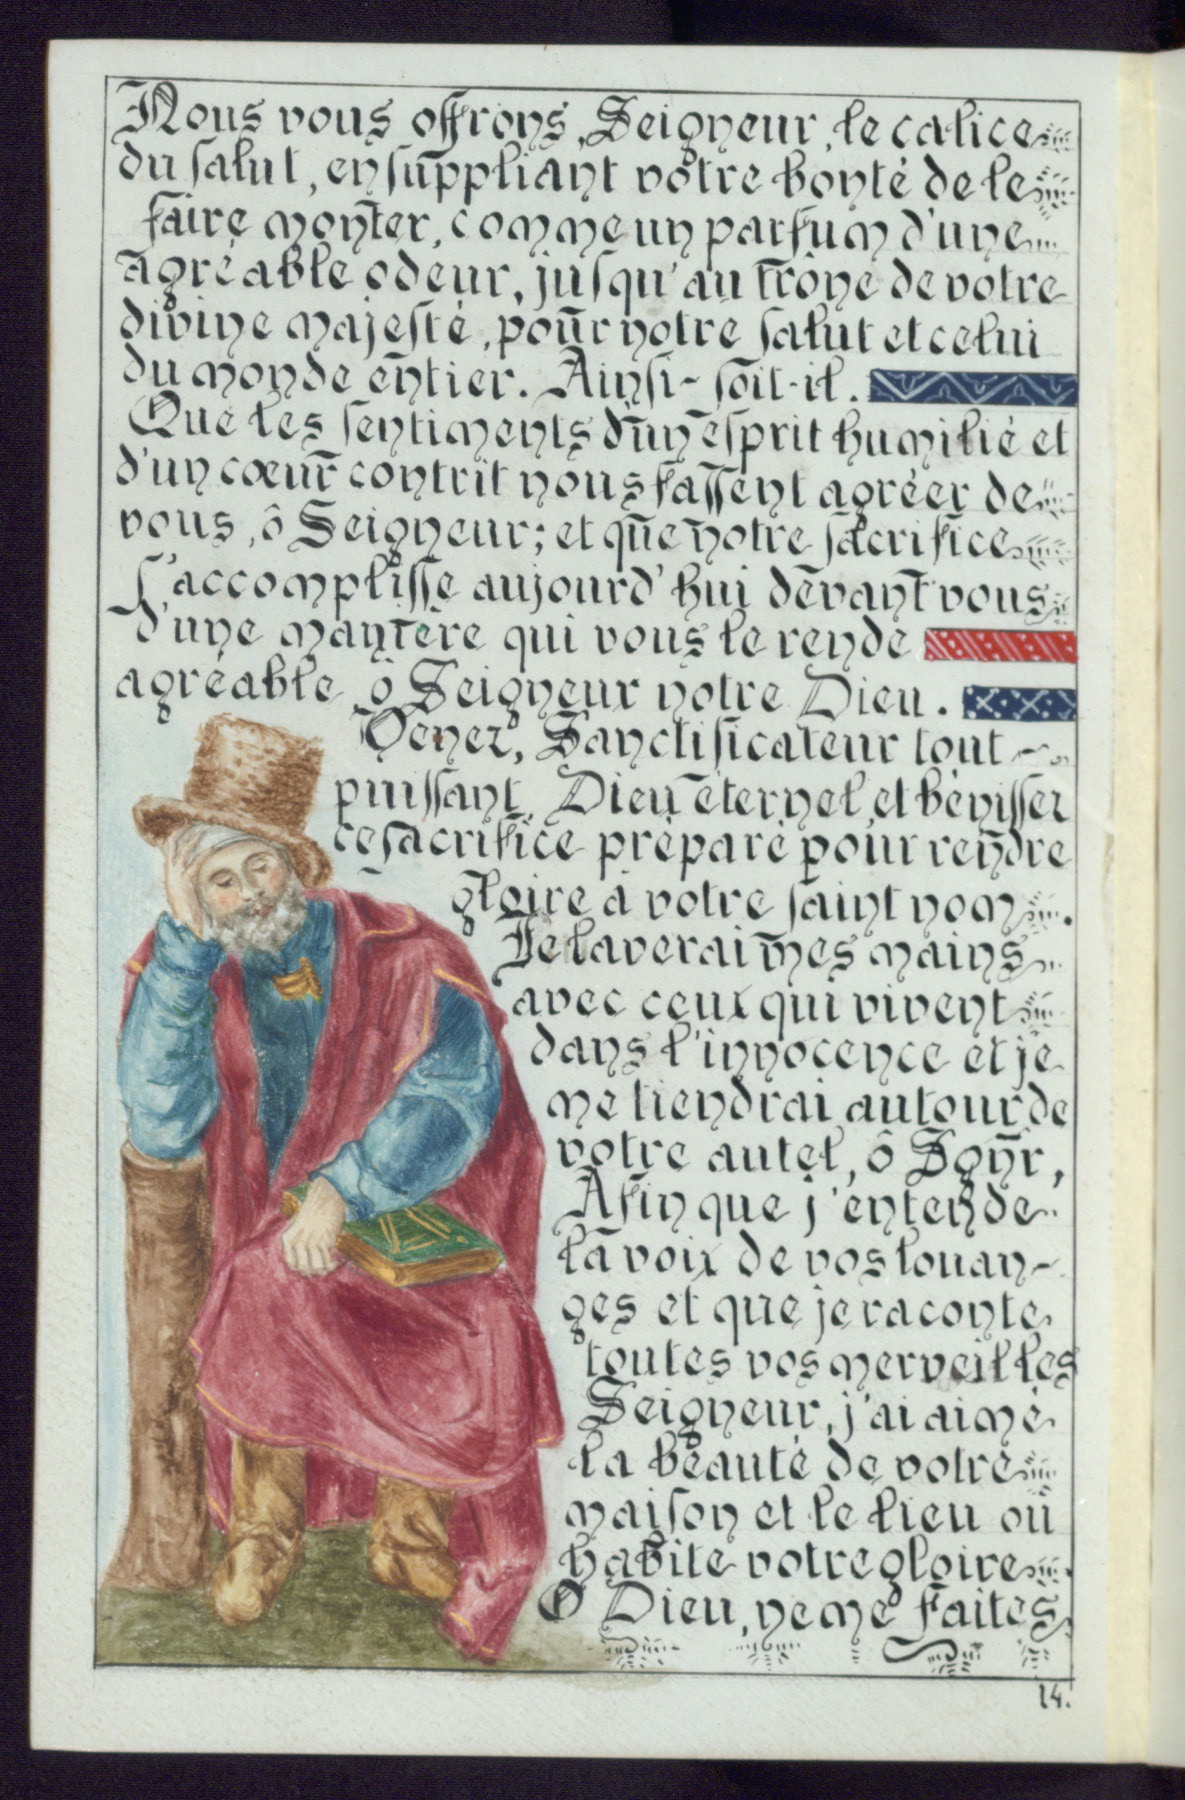 Nous vous offrons, Seigneur, le calice
du salut, en suppliant votre bonté de le
faire monter, comme un parfum d'une
agréable odeur, jusqu'au trône de votre
divine majesté, pour notre salut et celui
du monde entier. Ainsi-soit-il.
Que les sentiments d'un esprit humilié et
d'un cœur contrit nous fassent agréer de
vous, ô Seigneur; et que notre sacrifice
s'accomplisse aujourd'hui devant vous
d'une manière qui vous le rende
agréable, ô Seigneur notre Dieu.
Venez, Sanctificateur tout
puissant, Dieu éternel, et bénissez
ce sacrifice préparé pour rendre
gloire à votre saint nom.
Je laverai mes mains
avec ceux qui vivent
dans l'innocence et je
me tiendrai autour de
votre autel, ô Sgnr,
Afin que j'entende
la voix de vos louan-
ges et que je raconte
toutes vos merveilles
Seigneur, j'ai aimé
la beauté de votre
maison et le lieu où
habite votre gloire.
O Dieu, ne me faites
14.